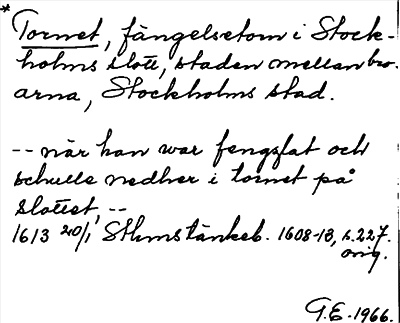 * Tornet, fängelsetorn i Stock-
holms slott, staden mellan bro-
arna, Stockholms stad.
-- när han war fengzlat och
schulle nedher i tornet på
slottet, --
1613 20/1 Sthms tänkeb. 1608-13, s. 227.
orig.
G.E. 1966.